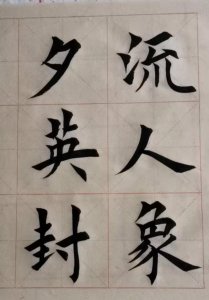 流人象
夕英封